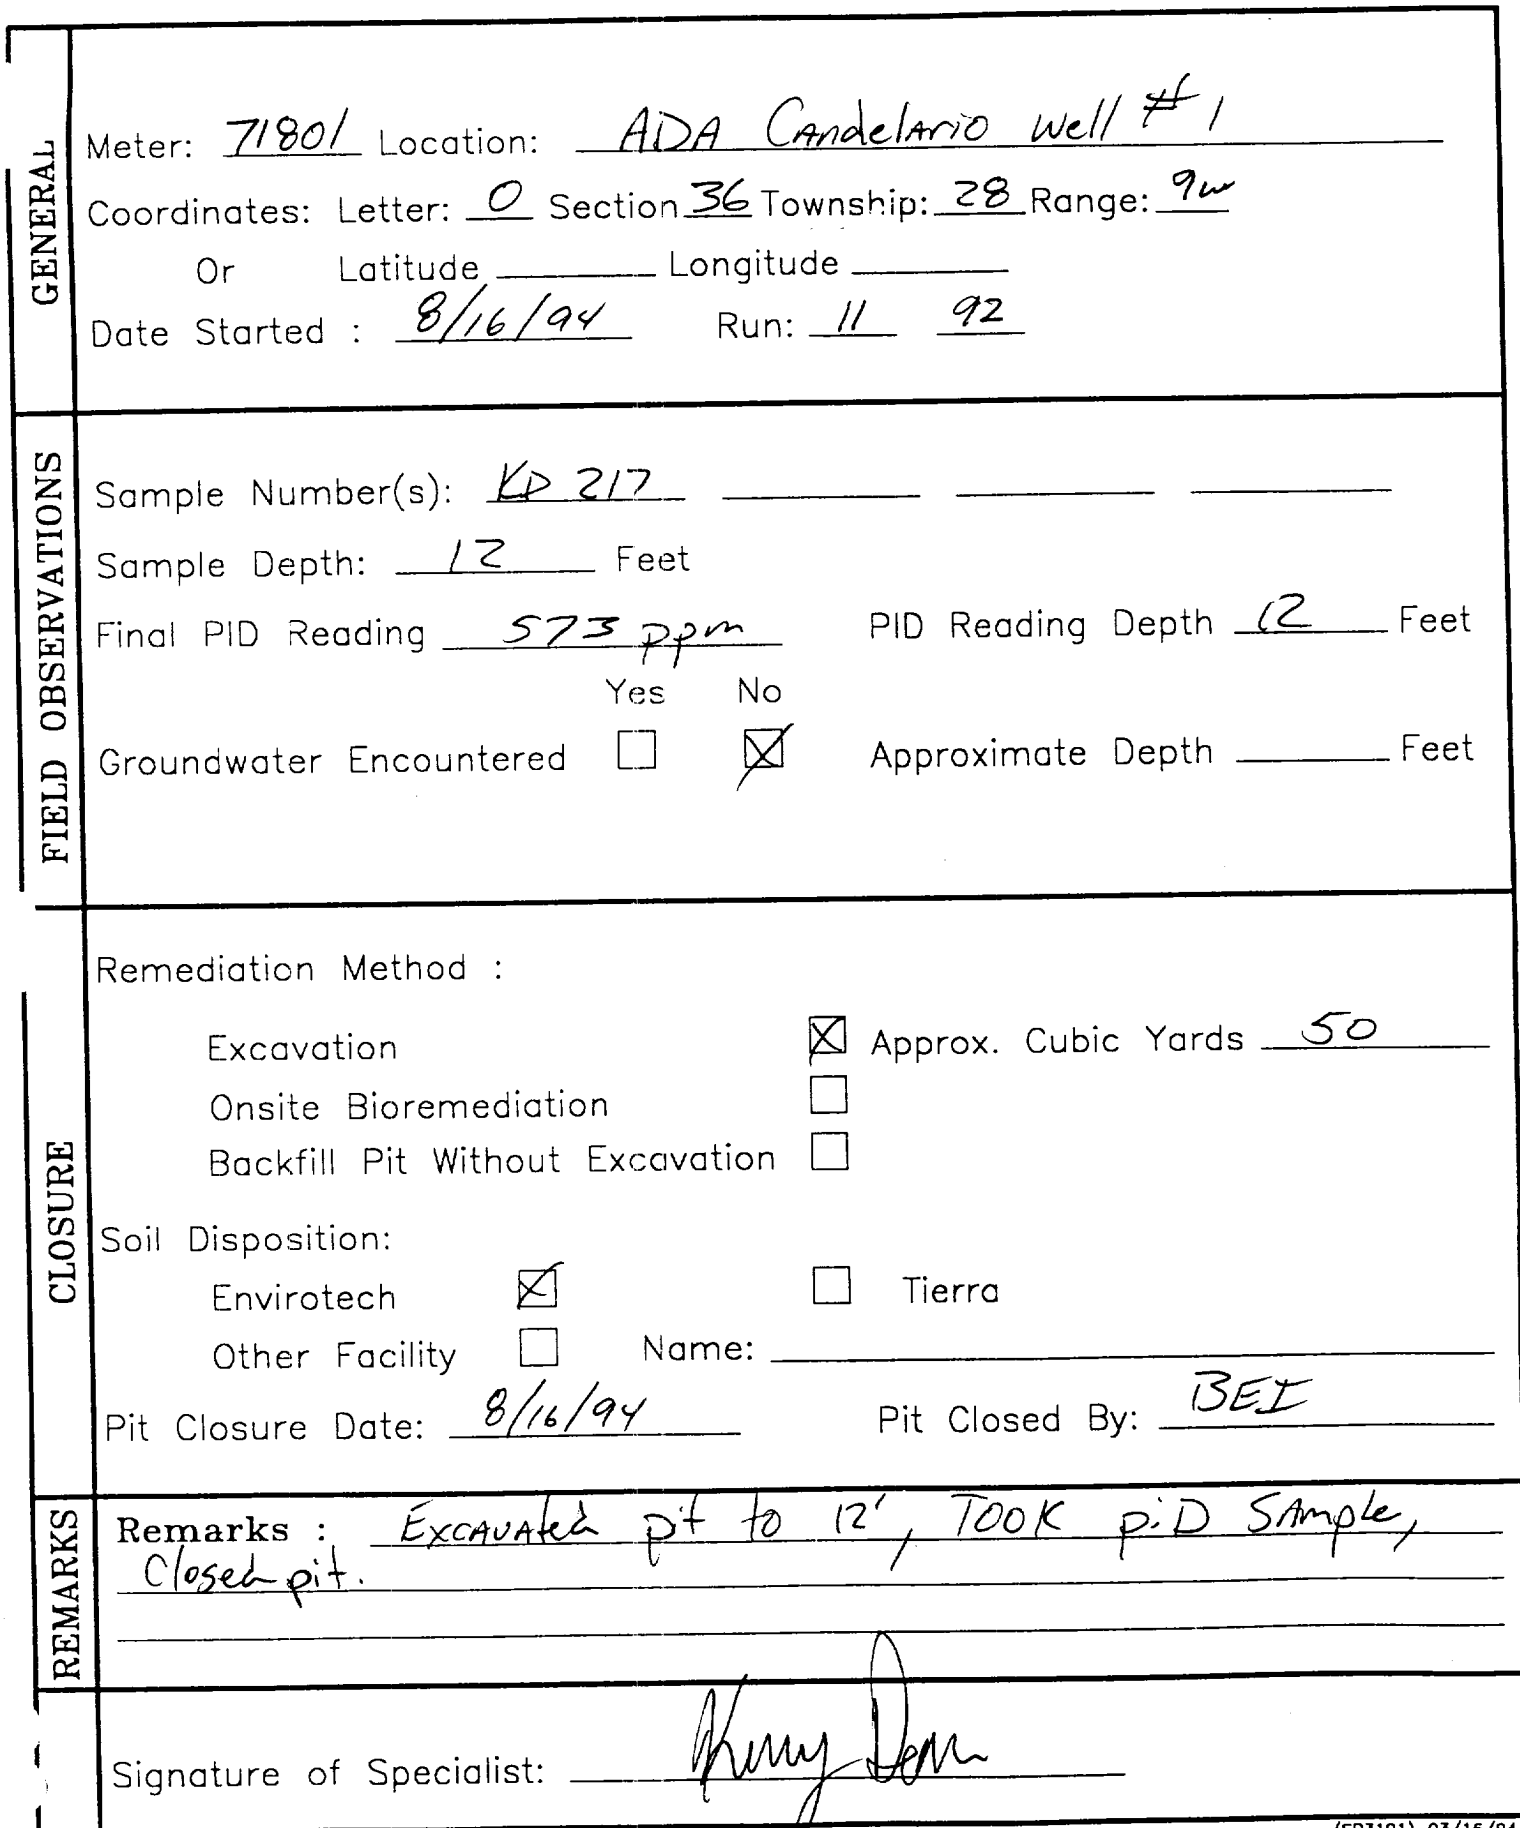 GENERAL
Meter: 71801 Location: ADA Candelario Well #1
Coordinates: Letter: O Section 36 Township: 28 Range: 9w
Or Latitude Longitude
Date Started : 8/16/94 Run: 11 92
FIELD OBSERVATIONS
Sample Number(s): KD 217
Sample Depth: 12 Feet
Final PID Reading 573 ppm PID Reading Depth 12 Feet
Yes No
Groundwater Encountered Approximate Depth Feet
CLOSURE
Remediation Method :
Excavation Approx. Cubic Yards 50
Onsite Bioremediation
Backfill Pit Without Excavation
Soil Disposition:
Envirotech Tierra
Other Facility Name:
Pit Closure Date: 8/16/94 Pit Closed By: BEI
REMARKS
Remarks : Excavated pit to 12', TOOK PiD SAmple,
Closed pit.
Signature of Specialist: Kelly